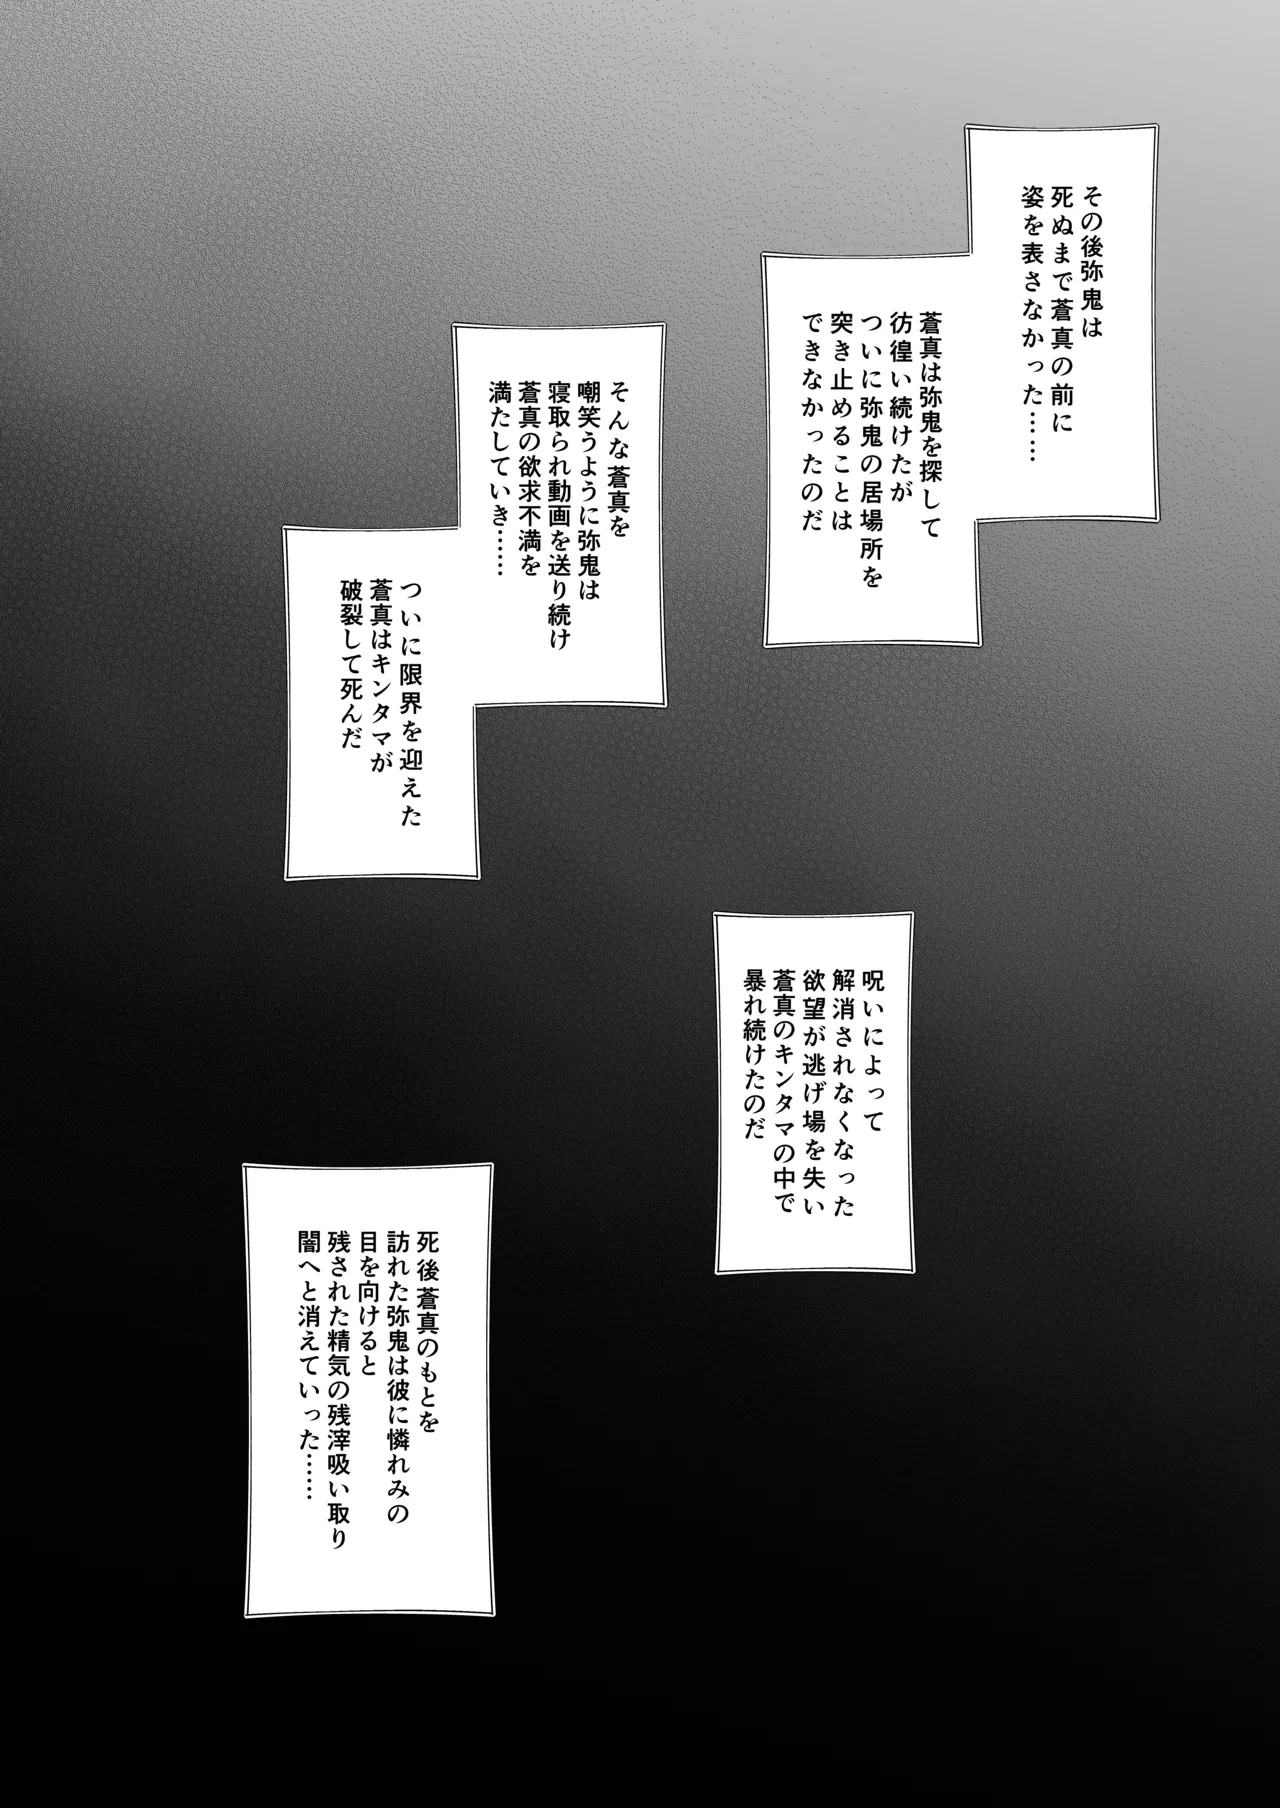 その後弥鬼は
死ぬまで蒼真の前に
姿を表さなかった……
蒼真は弥鬼を探して
彷徨い続けたが
ついに弥鬼の居場所を
突き止めることは
できなかったのだ
そんな蒼真を
嘲笑うように弥鬼は
寝取られ動画を送り続け
蒼真の欲求不満を
満たしていき……
ついに限界を迎えた
蒼真はキンタマが
破裂して死んだ
呪いによって
解消されなくなった
欲望が逃げ場を失い
蒼真のキンタマの中で
暴れ続けたのだ
死後蒼真のもとを
訪れた弥鬼は彼に憐れみの
目を向けると
残された精気の残滓吸い取り
闇へと消えていった……